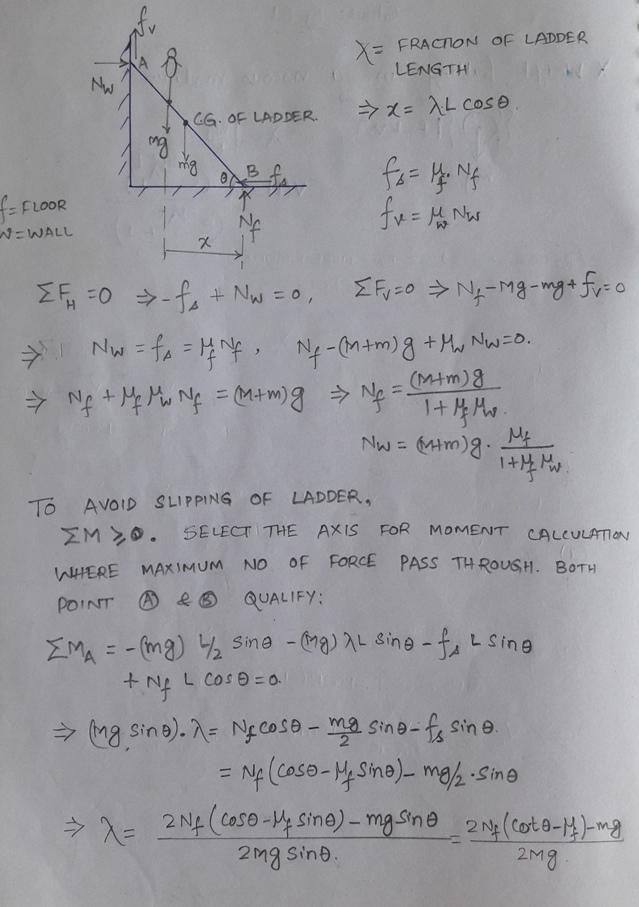 f_v
A
N_w
C.G. OF LADDER.
mg
mg
θ B f_s
N_f
x
f = FLOOR
W = WALL
λ = FRACTION OF LADDER
LENGTH
⇒ x = λL cosθ.
f_s = μ_f. N_f
f_v = μ_w N_w
ΣF_H = 0 ⇒ -f_s + N_w = 0, ΣF_V = 0 ⇒ N_f - Mg - mg + f_v = 0
⇒ N_w = f_s = μ_f N_f, N_f - (M+m)g + μ_w N_w = 0.
⇒ N_f + μ_f μ_w N_f = (M+m)g ⇒ N_f = (M+m)g / 1 + μ_f μ_w.
N_w = (M+m)g. μ_f / 1 + μ_f μ_w.
TO AVOID SLIPPING OF LADDER,
ΣM ⩾ 0. SELECT THE AXIS FOR MOMENT CALCULATION
WHERE MAXIMUM NO OF FORCE PASS THROUGH. BOTH
POINT Ⓐ & Ⓑ QUALIFY:
ΣM_A = -(mg) L/2 sinθ - (Mg) λL sinθ - f_s L sinθ
+ N_f L cosθ = 0.
⇒ (Mg sinθ). λ = N_f cosθ - mg/2 sinθ - f_s sinθ.
= N_f (cosθ - μ_f sinθ) - mg/2 · sinθ
⇒ λ = 2N_f (cosθ - μ_f sinθ) - mg sinθ / 2Mg sinθ. = 2N_f (cotθ - μ_f) - mg / 2Mg.